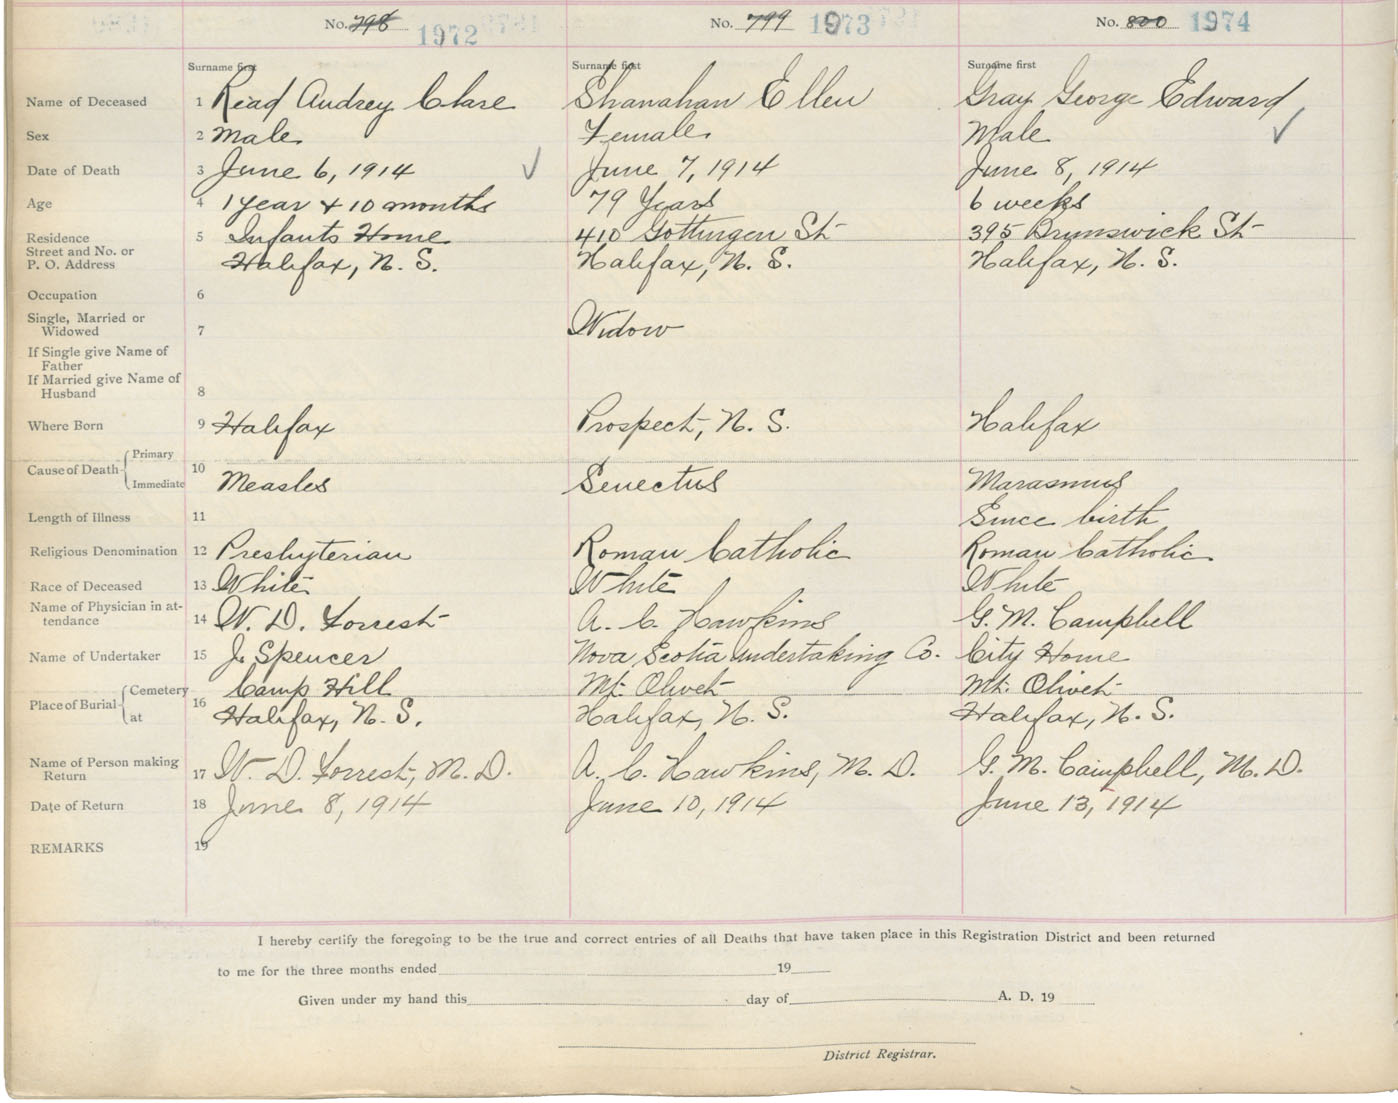 No. 798 1972 No. 799 1973 No. 800 1974
Surname first Surname first Surname first
Name of Deceased 1 Read Audrey Clare Shanahan Ellen Gray George Edward
Sex 2 Male Female Male
Date of Death 3 June 6, 1914 June 7, 1914 June 8, 1914
Age 4 1 year + 10 months 79 Years 6 weeks
Residence 5 Infants Home 410 Gottingen St 395 Brunswick St
Street and No. or
P. O. Address Halifax, N. S. Halifax, N. S. Halifax, N. S.
Occupation 6
Single, Married or
Widowed 7 Widow
If Single give Name of
Father
If Married give Name of
Husband 8
Where Born 9 Halifax Prospect, N. S. Halifax
Primary
Cause of Death 10
Immediate Measles Senectus Marasmus
Length of Illness 11 Since birth
Religious Denomination 12 Presbyterian Roman Catholic Roman Catholic
Race of Deceased 13 White White White
Name of Physician in at-
tendance 14 W. D. Forrest A. C. Hawkins G. M. Campbell
Name of Undertaker 15 J. Spencer Nova Scotia Undertaking Co. City Home
Cemetery Camp Hill Mt. Olivet Mt. Olivet
Place of Burial 16
at Halifax, N. S. Halifax, N. S. Halifax, N. S.
Name of Person making
Return 17 W. D. Forrest, M. D. A. C. Hawkins, M. D. G. M. Campbell, M. D.
Date of Return 18 June 8, 1914 June 10, 1914 June 13, 1914
REMARKS 19
I hereby certify the foregoing to be the true and correct entries of all Deaths that have taken place in this Registration District and been returned
to me for the three months ended 19
Given under my hand this day of A. D. 19
District Registrar.